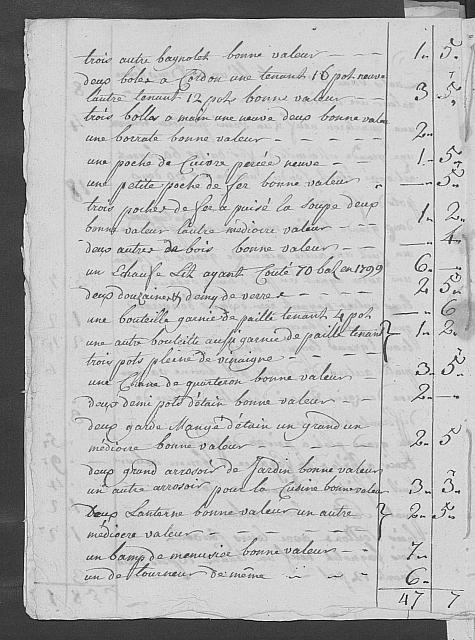 trois autre bagnolet bonne valeur - - 1 " 5 "
deux boles a Cordon une tenant 16 pot neuve
l'autre tenant 12 pots bonne valeur - - 3 " 5 "
trois bolles a main une neuve deux bonne valeur
une borrate bonne valeur - - - 2 "
une poche de Cuivre percée neuve - - 1 " 5 "
une petite poche de fer bonne valeur " — " 5 "
trois poches de fer a puisé la soupe deux
bonne valeur l'autre mediocre valeur - - 1 " 2 "
deux autres de bois bonne valeur - - — " 4 "
un Echaufe Lit ayant Couté 70 bat en 1799 6 " —
deux douzaines & demy de verres 2 " 5 "
une bouteille garnie de paille tenant 4 pot — " 6
une autre bouteille aussi garnie de paille tenant 1 " 2 "
trois pots pleine de vinaigre - - -
une Chane de quarteron bonne valeur - 3 " 5 "
deux demi pots d'étain bonne valeur - - 2 " — "
deux garde Mangé d'étain un grand un
mediocre bonne valeur - - - 2 " 5
deux grand arrosoir de Jardin bonne valeur
un autre arrosoir pour la Cusine bonne valeur 3 " 3 "
Deux Lanterne bonne valeur un autre 2 " 5 "
médiocre valeur - - -
un bamp de menusiée bonne valeur - - 7 "
un de tourneur de même " - " - 6 "
47 7